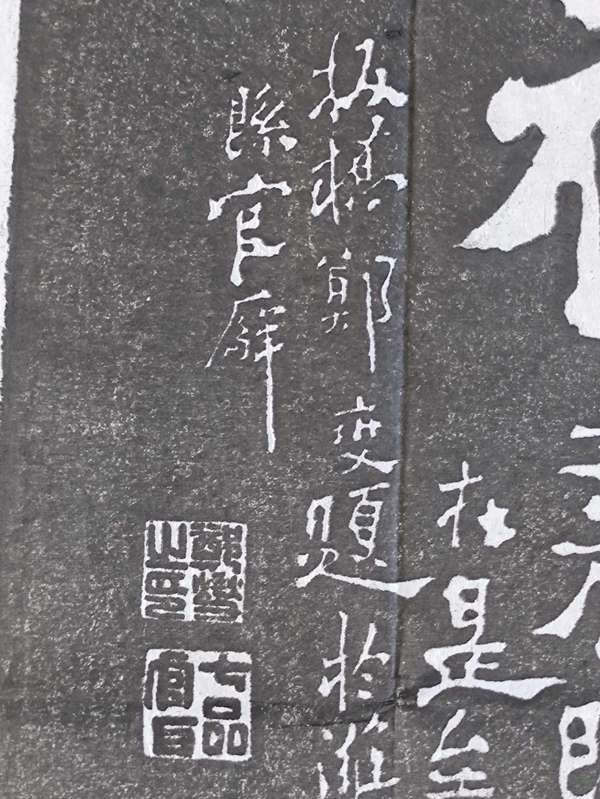 在是至
板橋鄭燮題於濰
縣官廨
鄭燮之印
七品官耳